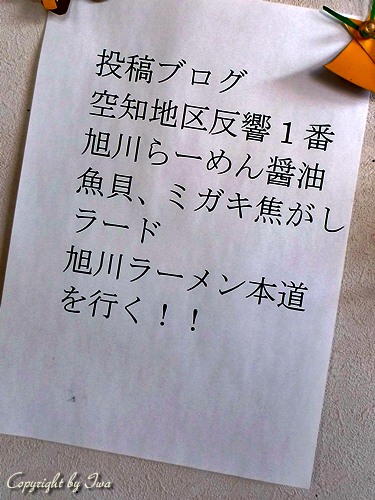 投稿ブログ
空知地区反響１番
旭川らーめん醤油
魚貝、ミガキ焦がし
ラード
旭川ラーメン本道
を行く！！
Copyright by Iwa